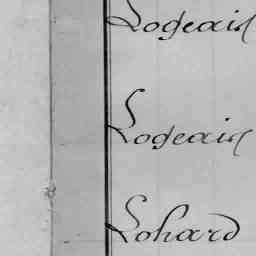 Logeais
Logeais
Lohard